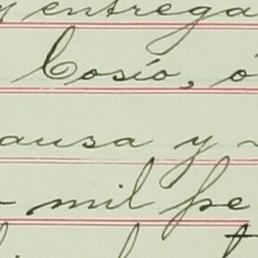 y entrega
Cosío, ó
ausa y
mil pe